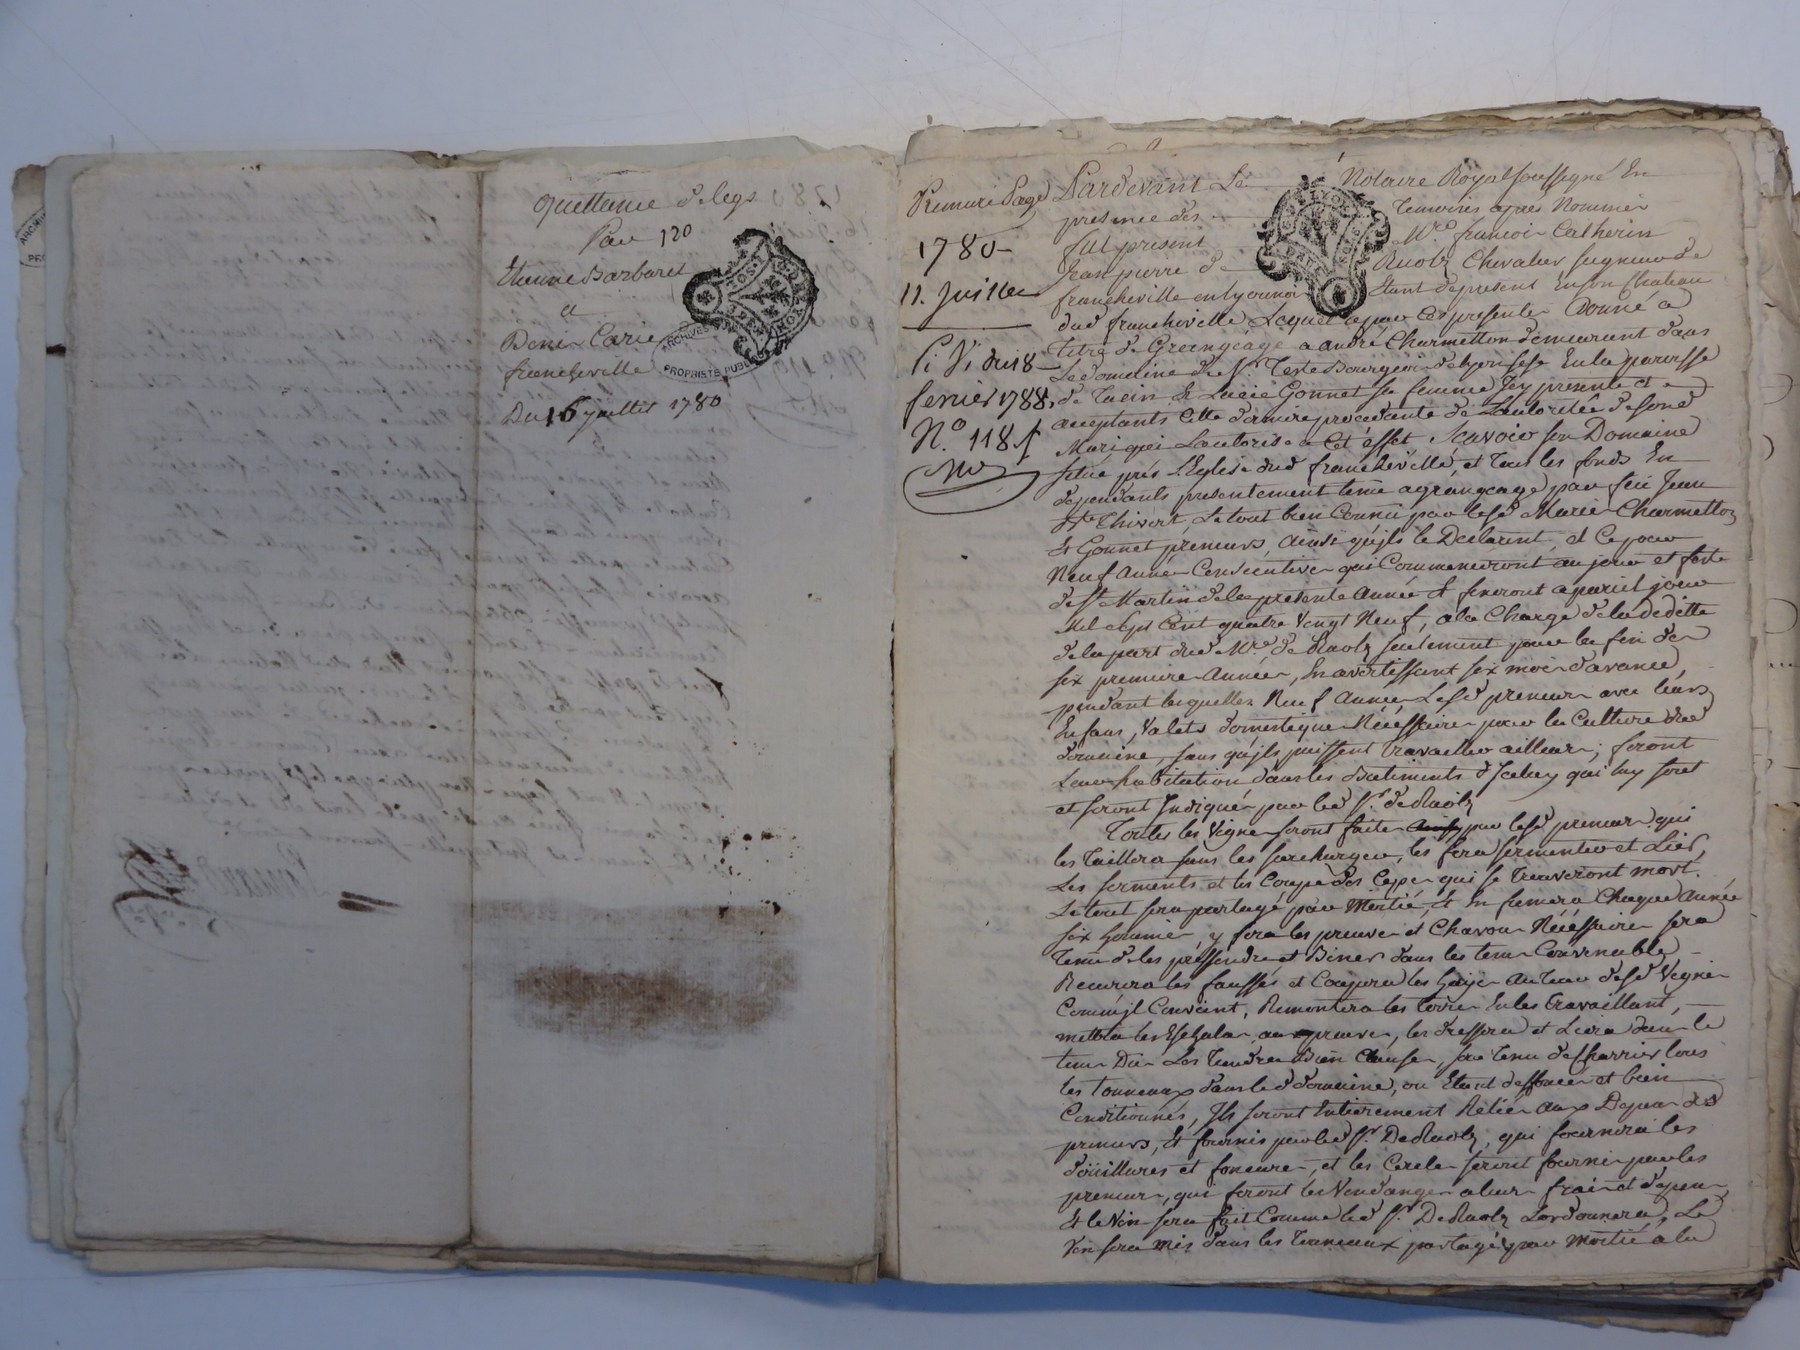 Quittance de legs
Par 120
Etienne Barbaret
a
Denis Carie
francheville
Du 16 juillet 1780
ARCHIVES
PROPRIÉTÉ PUBL
Premiere Page
1780
11. Juillet
fevrier 1788.
N.º 118
Pardevant Le Notaire Royal soussigné En
presence des Temoins apres Nommés
fut present Mre françois Catherin
Jean pierre de Ruolz Chevalier seigneur de
francheville en lyonnois Etant de present En son chateau
dud francheville, Lequel a par Ces presentes donné a
titre de Grangeage a andré Charmetton demeurant dans
Le domaine du Sr Teste Bourgeois de lyon sise En la paroisse
de Tacin Et Lucie Gonnet sa femme Icy presents et
acceptants Cette derniere procedante de Lautorité de sond
Mari qui Lautorise a Cet effet Scavoir son Domaine
situé prés L'Eglise dud francheville, et tous les fonds En
dependants presentement tenu a grangeage par feu Jean
Thivert, Le tout bien Connu par lesd Mariés Charmetton
Et Gonnet preneurs, ainsi qu'jls le Declarent, et Ce pour
Neuf années Consecutives qui Commenceront au jour et feste
de St Martin de la presente Année et finiront a pareil jour
Mil sept Cent quatre Vingt Neuf, a la Charge de la deditte
de la part dud Mre de Ruolz seulement pour la fin des
six premiere Années, En avertissant six mois d'avance,
pendant lesquelles Neuf Années Lesd preneurs avec leurs
Enfans, Valets domestiques Nécéssaires pour la Culture dud
domaine, sans qu'jls puissent travailler ailleurs, feront
Leur habitation dans les Batiments d'Jceluy qui luy sont
et seront Indiqués par led Sr. de Ruolz
Toutes les Vignes seront faites par lesd preneurs qui
les Taillera sans les surcharger, les fera sermenter et Lier,
Les serments et les Coupes des Ceps qui se trouveront mort.
Le tout sera partagé par Moitié, et En fumera Chaque Année
six hommées, y fera les preuves et Chavons Nécéssaires sera
Tenu de les et Biner dans les tems Convenables
Recurera les fossés et Coupera les hayes Autour desd Vignes
Comm'jl Convient, Remontera les terres En les travaillant,
mettra les Eschalas aux preuves, les dressera et Liera dans le
tems Du Les tiendra bien Closes, sera tenu de charrier tous
les tonneaux dans led domaine, ou Etant et bien
Conditionnés, Jls seront Entierement Reliés aux Depens des
preneurs, Et fournis par led Sr. De Ruolz, qui fournira les
doüillures et fonsures, et les Cercles seront fournis par les
preneurs, qui feront les Vendanges a leurs frais et depens,
Et le Vin sera fait Comme led Sr De Ruolz Lordonnera, Le
Vin sera mis dans les Tonneaux partagés par Moitié a la